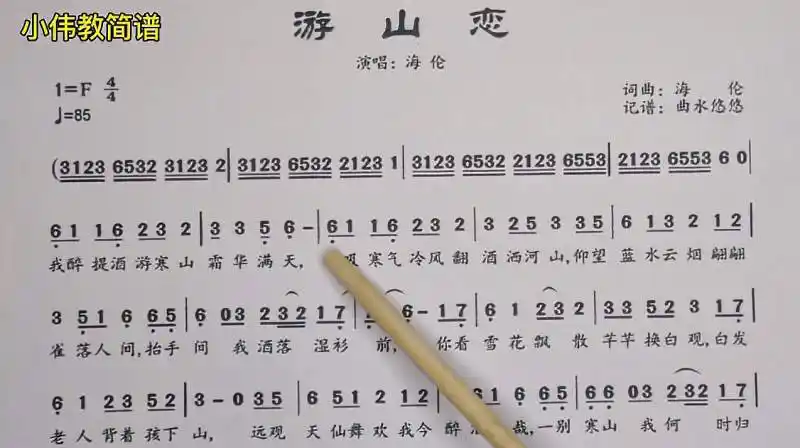 小伟教简谱
游 山 恋
演唱：海 伦
1=F 4/4
词曲：海 伦
♩=85
记谱：曲水悠悠
(3123 6532 3123 2 | 3123 6532 2123 1 | 3123 6532 3123 6553 | 2123 6553 6 0
6 1 1 6 2 3 2 | 3 3 5 6 – | 6 1 1 6 2 3 2 | 3 2 5 3 3 5 | 6 1 3 2 1 2
我醉提酒游寒山霜华满天， 吸寒气冷风翻酒洒河山，仰望蓝水云烟翩翩
3 5 1 6 6 5 | 6 0 3 2 3 2 1 7 6 – 1 7 | 6 1 2 3 5 3 2 3 1 7
雀落人间，抬手间我洒落湿衫前， 你看雪花飘散芊芊换白观，白发
6 1 2 3 5 2 | 3 – 0 3 5 | 6 1 5 3 6 5 | 6 6 0 3 2 3 2 1 7
老人背着孩下山， 远观天仙舞欢我今醉 哉，一别寒山我何时归